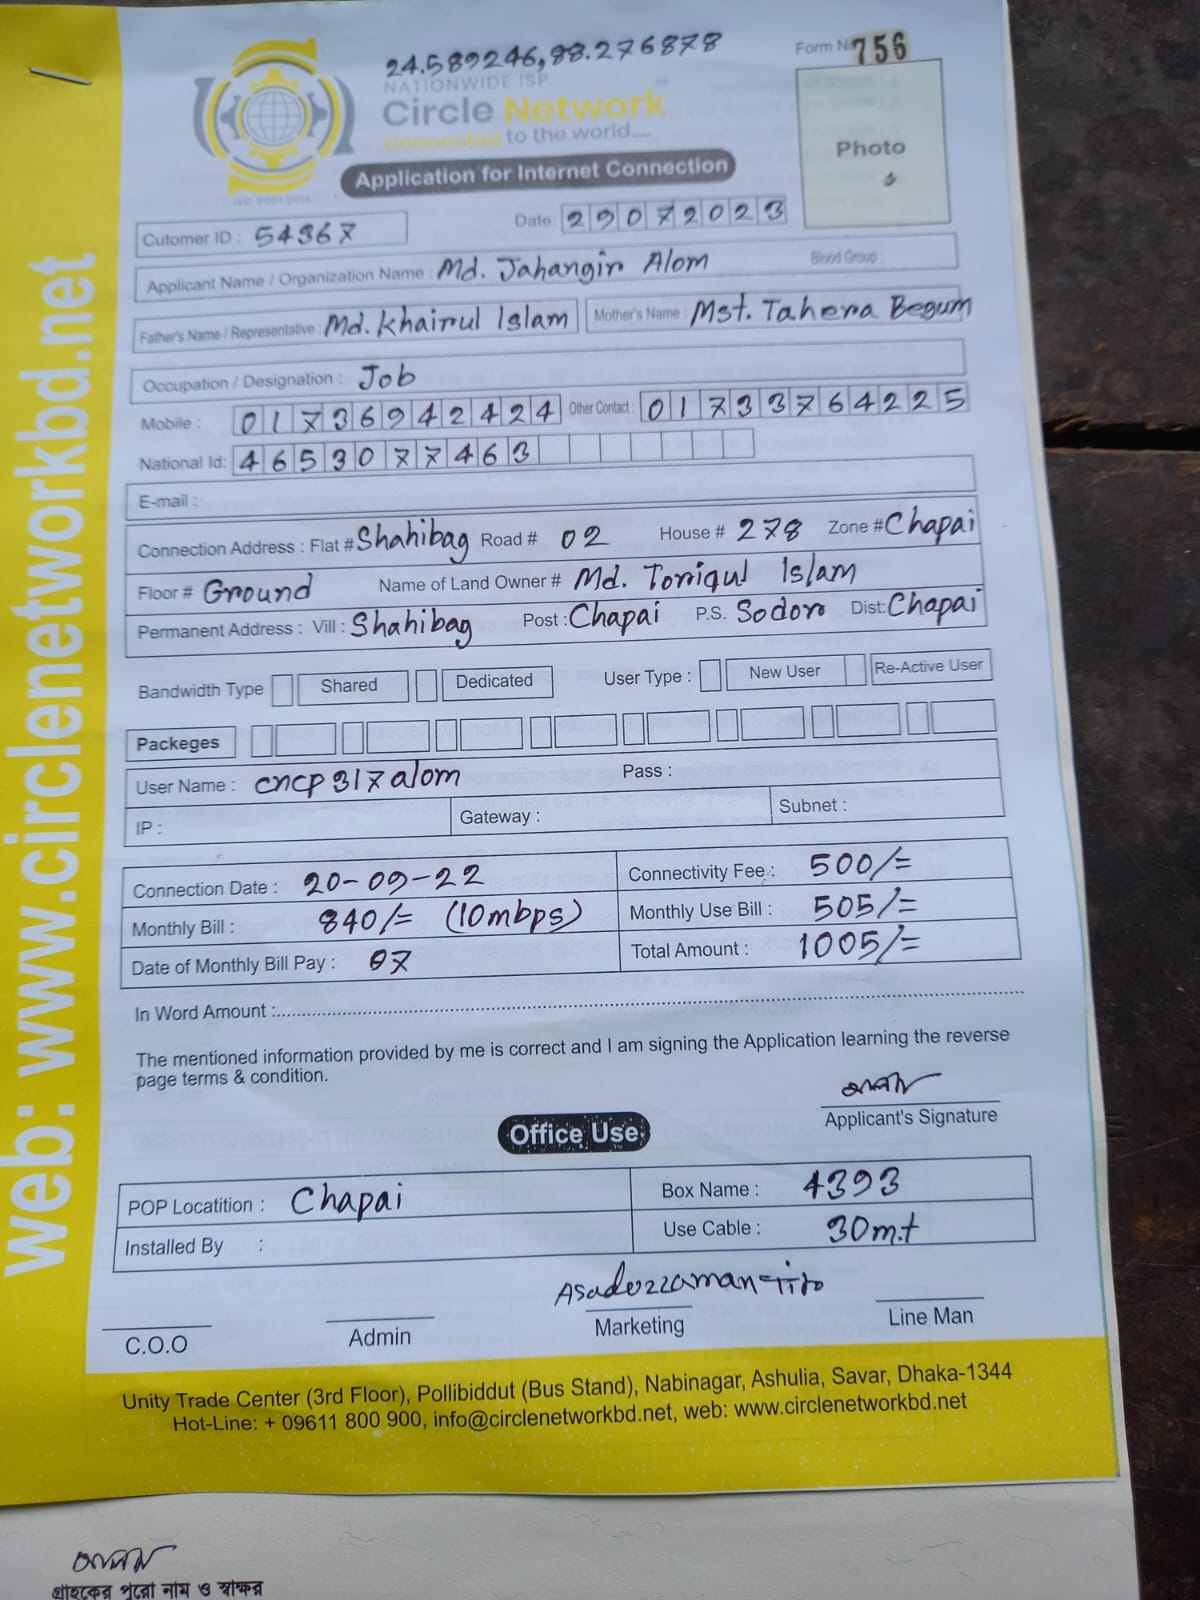 24.589246,88.276878
Form No 756
NATIONWIDE ISP
Circle Network
Connected to the world....
Photo
Application for Internet Connection
ISO 9001:2015
Cutomer ID : 54367
Date: 29072023
Applicant Name / Organization Name : Md. Jahangir Alom Blood Group :
Father's Name / Representative : Md. Khairul Islam Mother's Name : Mst. Tahera Begum
Occupation / Designation : Job
Mobile : 01736942424 Other Contact : 01733764225
National Id: 4653077463
E-mail :
Connection Address : Flat # Shahibag Road # 02 House # 278 Zone # Chapai
Floor # Ground Name of Land Owner # Md. Toriqul Islam
Permanent Address : Vill : Shahibag Post : Chapai P.S. Sodor Dist: Chapai
Bandwidth Type Shared Dedicated User Type : New User Re-Active User
Packeges
User Name : cncp317alom Pass :
IP : Gateway : Subnet :
Connection Date : 20-09-22 Connectivity Fee : 500/=
Monthly Bill : 840/= (10mbps) Monthly Use Bill : 505/=
Date of Monthly Bill Pay : 07 Total Amount : 1005/=
In Word Amount :
The mentioned information provided by me is correct and I am signing the Application learning the reverse
page terms & condition.
Applicant's Signature
Office Use
POP Locatition : Chapai Box Name : 4393
Installed By : Use Cable : 30m.t
Asadozzaman
C.O.O Admin Marketing Line Man
Unity Trade Center (3rd Floor), Pollibiddut (Bus Stand), Nabinagar, Ashulia, Savar, Dhaka-1344
Hot-Line: + 09611 800 900, info@circlenetworkbd.net, web: www.circlenetworkbd.net
web: www.circlenetworkbd.net
গ্রাহকের পুরো নাম ও স্বাক্ষর